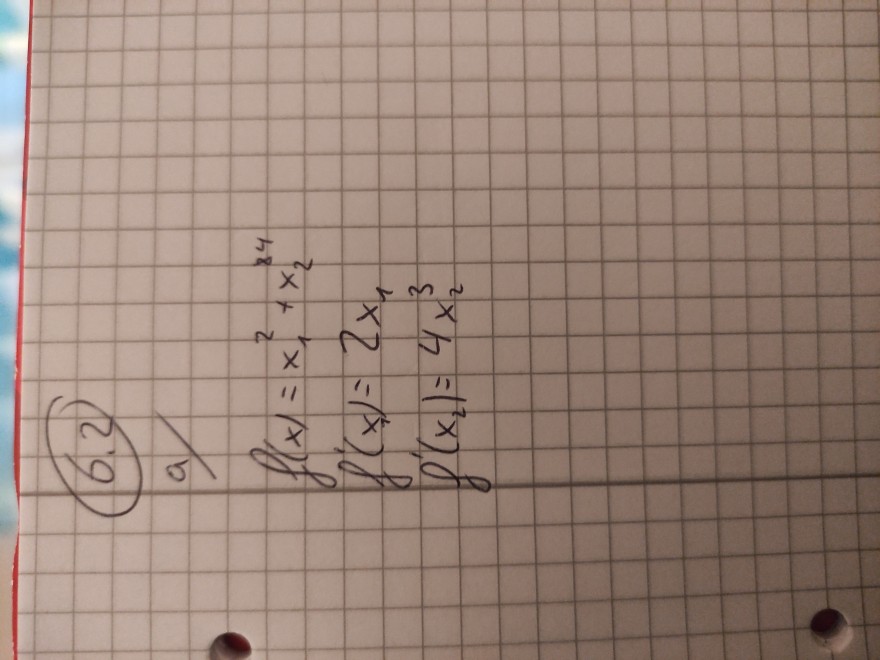 6.2
a)
f(x) = x₁² + x₂⁴
f'(x₁) = 2x₁
f'(x₂) = 4x₂³